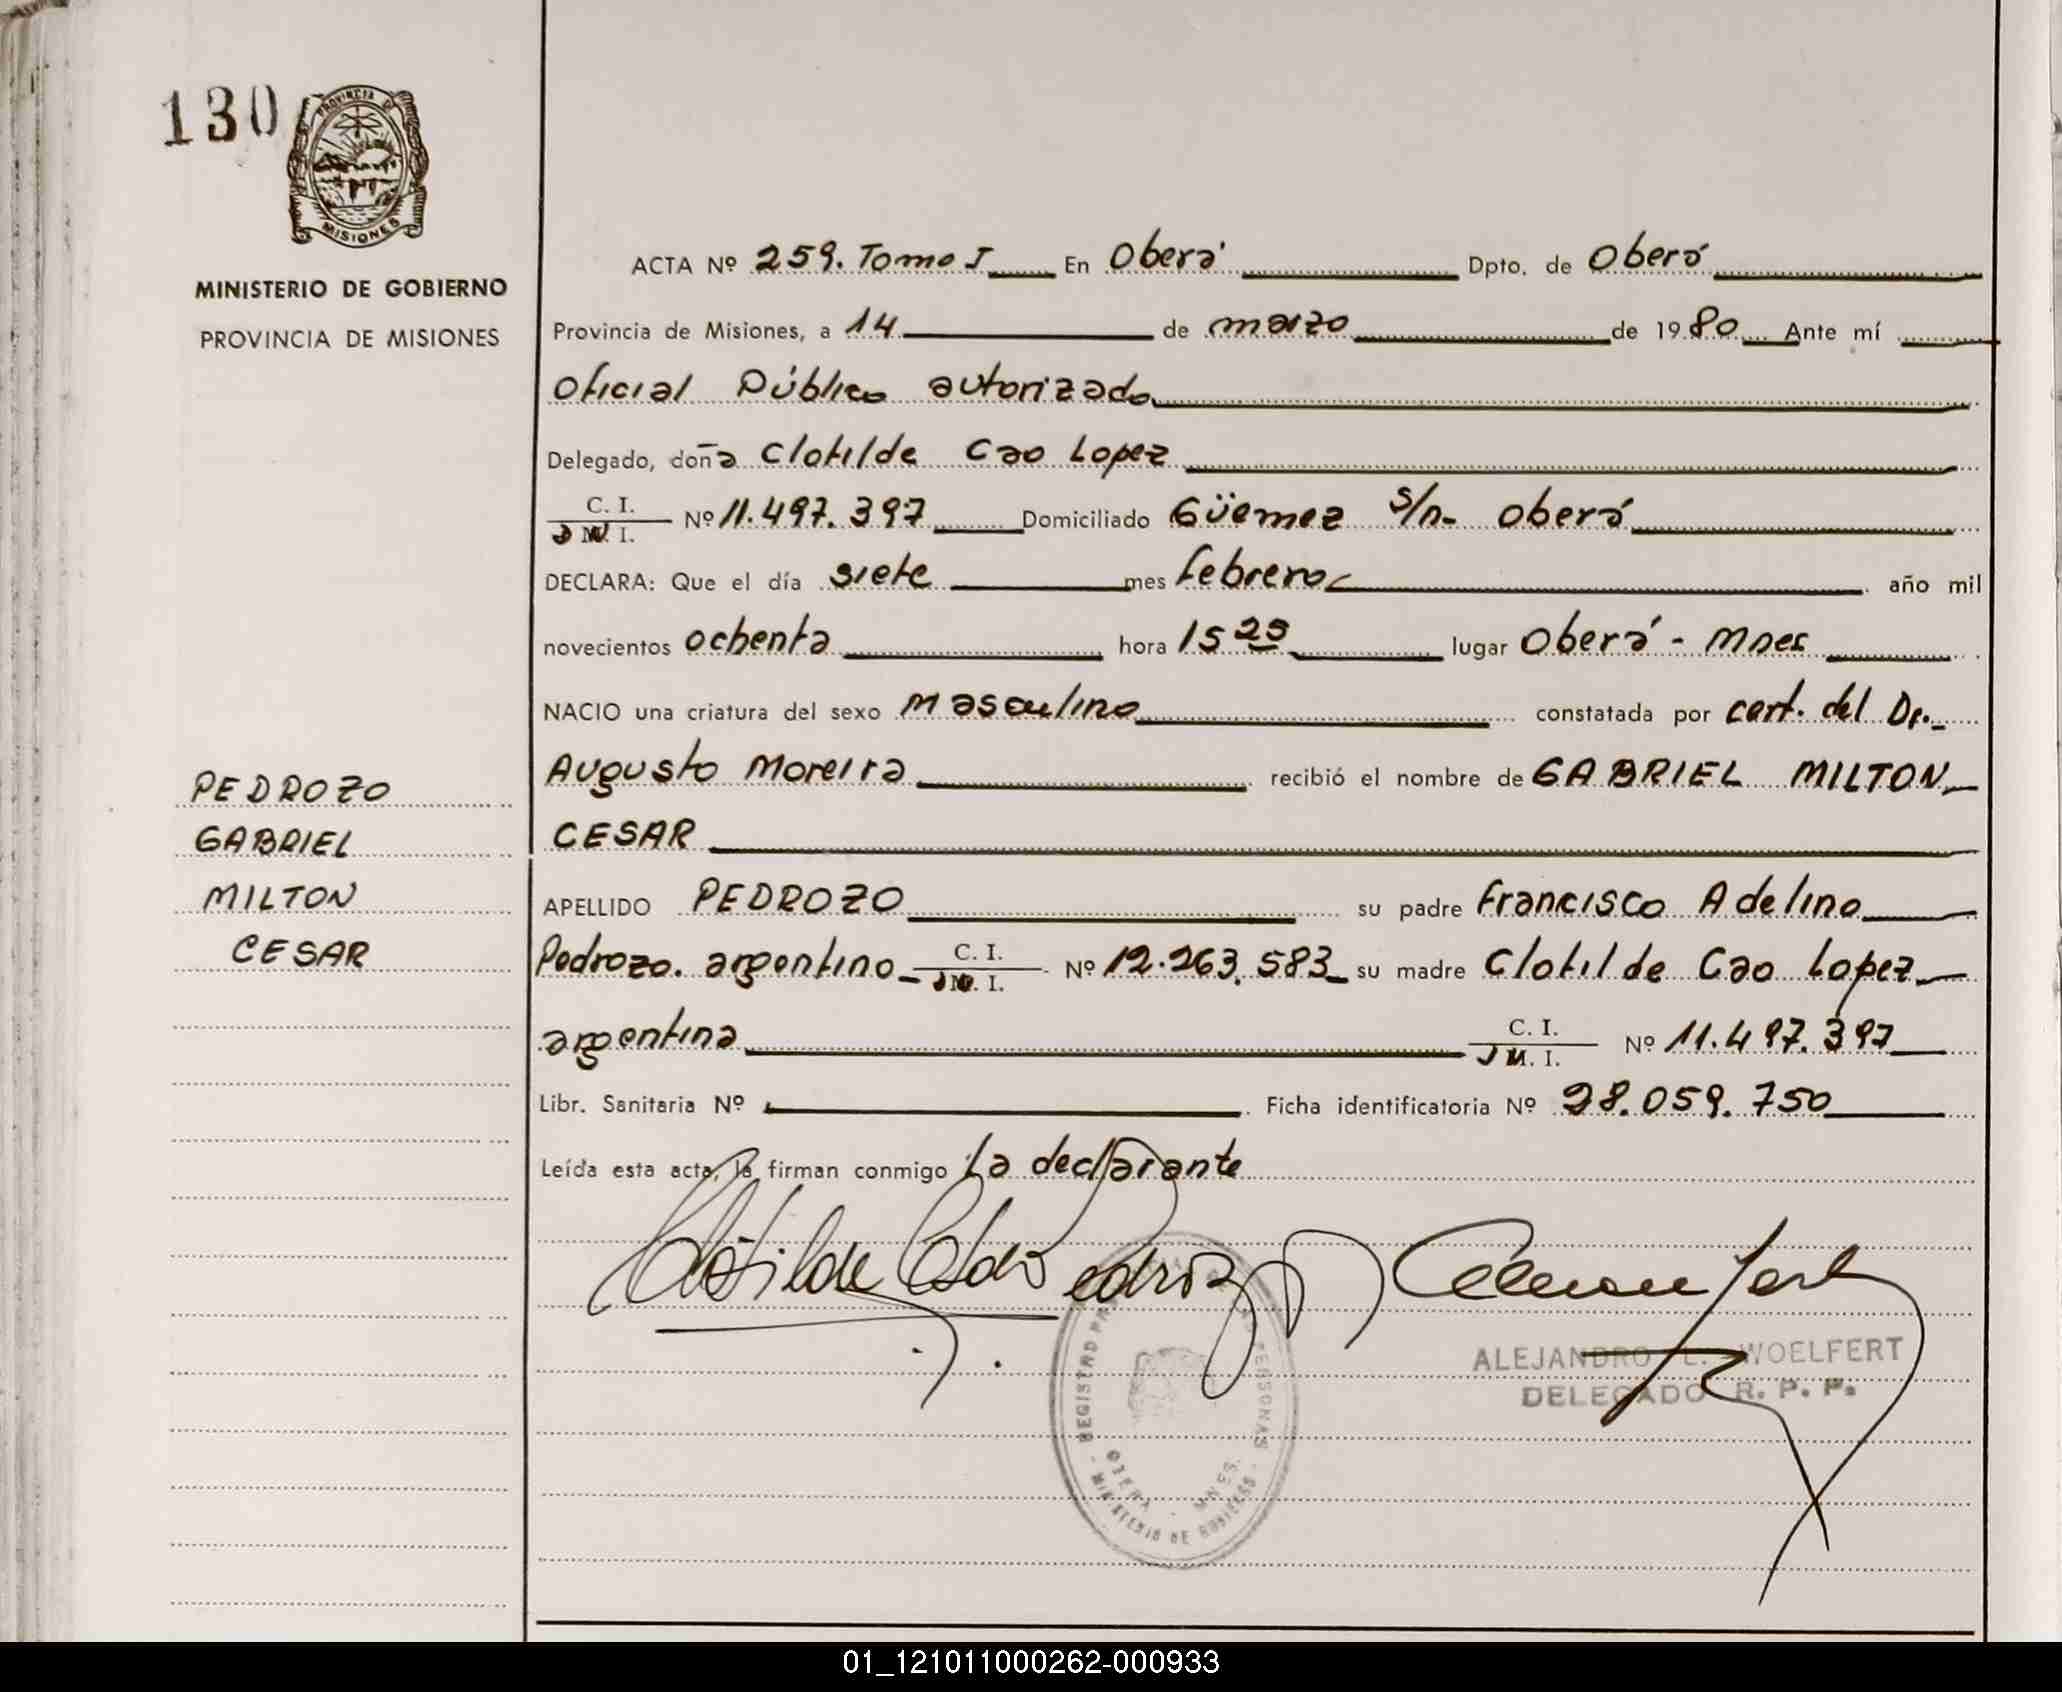 130
PROVINCIA DE
MISIONES
MINISTERIO DE GOBIERNO
PROVINCIA DE MISIONES
PEDROZO
GABRIEL
MILTON
CESAR
ACTA Nº 259. Tomo I En Oberá Dpto. de Oberá
Provincia de Misiones, a 14 de marzo de 1980 Ante mí
Oficial Público autorizado
Delegado, doña Clotilde Cao Lopez
C. I.
D N. I. Nº 11.497.397 Domiciliado Güemez s/n- Oberá
DECLARA: Que el día siete mes febrero año mil
novecientos ochenta hora 15 25 lugar Oberá - Mnes
NACIO una criatura del sexo masculino constatada por cert. del Dr.
Augusto Moreira recibió el nombre de GABRIEL MILTON
CESAR
APELLIDO PEDROZO su padre Francisco Adelino
Pedrozo. argentino C. I. Nº 12.263.583 su madre Clotilde Cao Lopez
argentina C. I. Nº 11.497.397
Libr. Sanitaria Nº Ficha identificatoria Nº 28.059.750
Leída esta acta, la firman conmigo la declarante
Clotilde Cao Pedrozo
ALEJANDRO L. WOELFERT
DELEGADO R. P. P.
REGISTRO PROVINCIAL DE LAS PERSONAS
OBERA - MNES.
MINISTERIO DE GOBIERNO
01_121011000262-000933